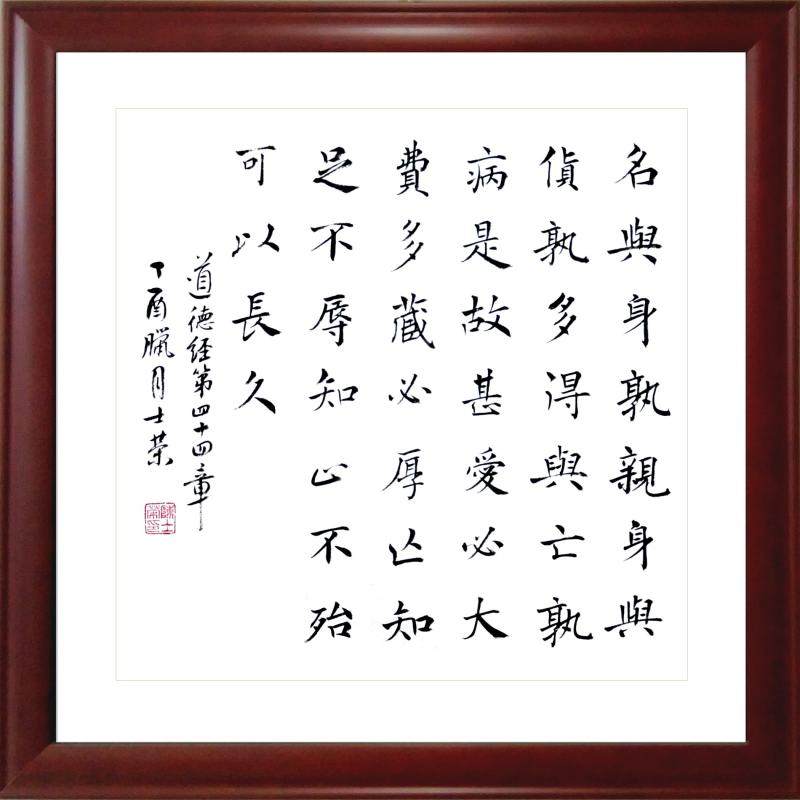 名與身孰親身與
貨孰多得與亡孰
病是故甚愛必大
費多藏必厚亡知
足不辱知止不殆
可以長久
道德经第四十四章
丁酉臘月士荣